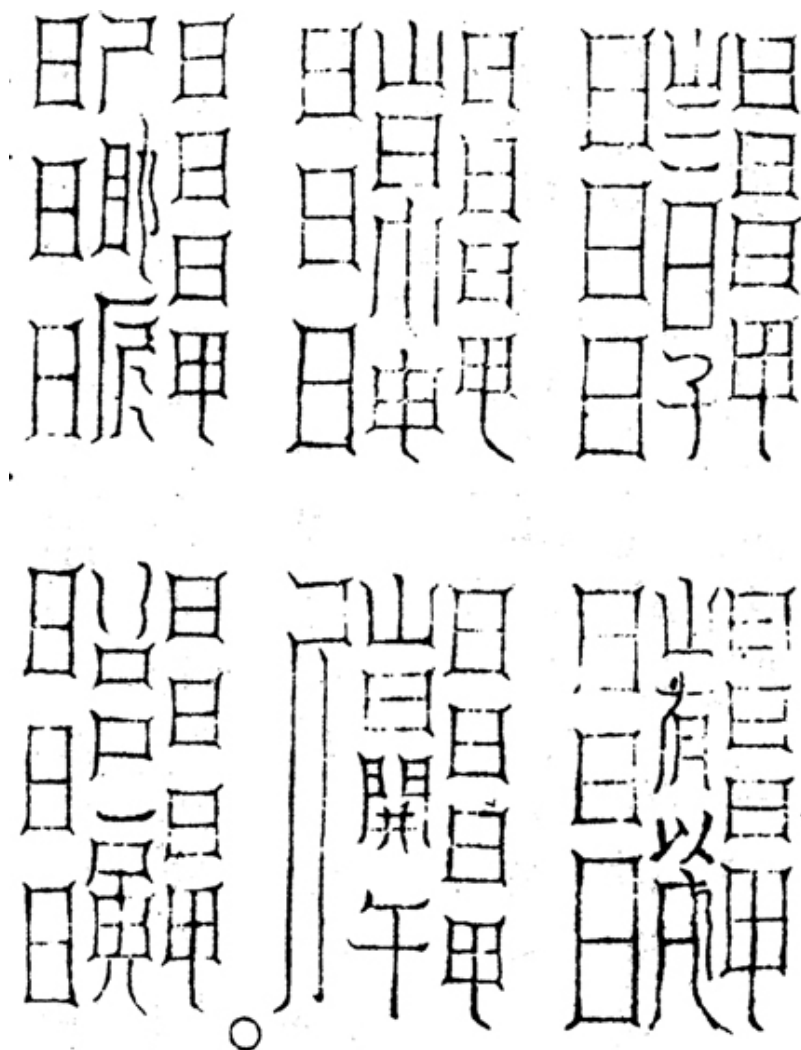 日日日甲
山日子
日日日
日日日甲
山日川申
日日日
日日日甲
尸辰
日日日
日日日甲
山有以戌
日日日
日日日甲
山日開午
日日日甲
口尸寅
日日日